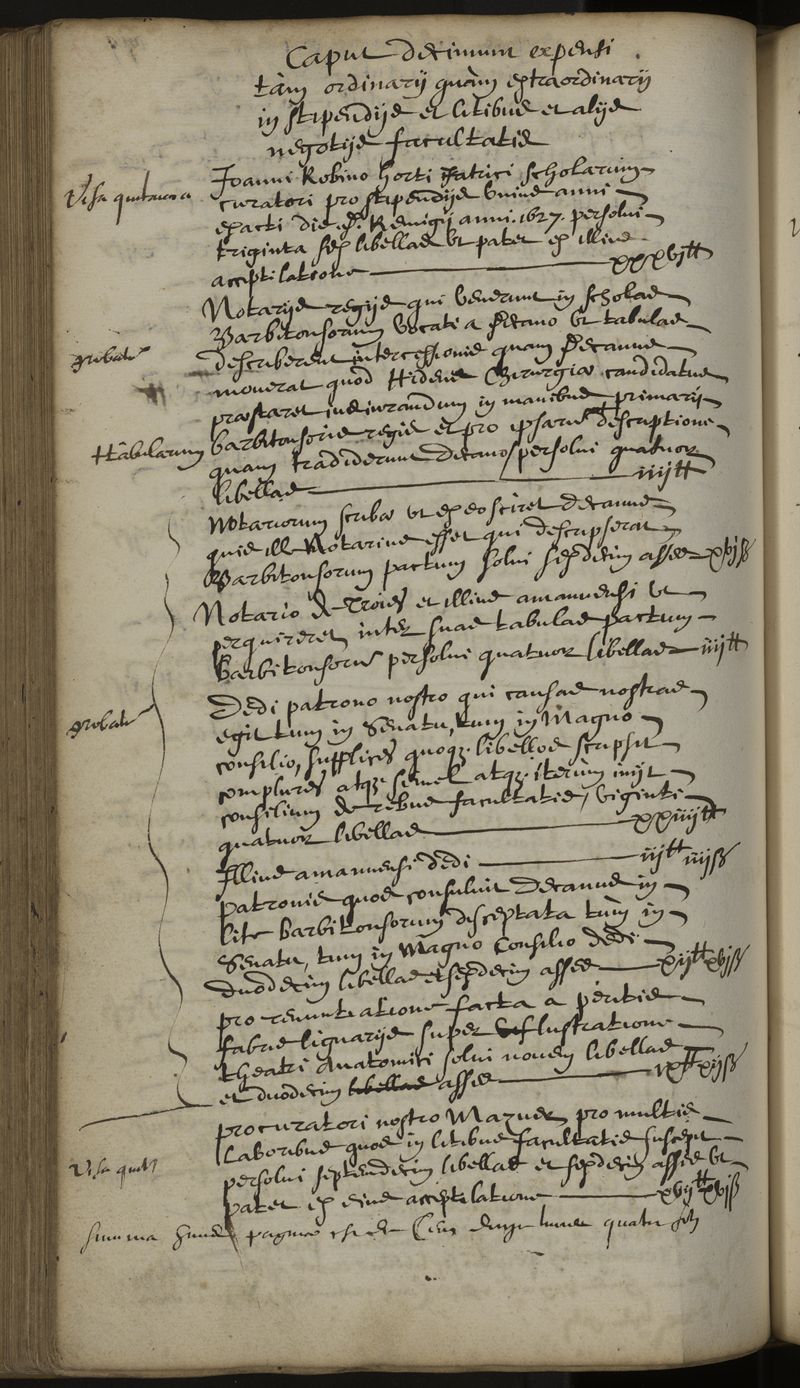 Caput decimum expensi
tàm ordinarij quàm extraordinarij
in stipendijs et litibus et alijs
negotijs facultatis
Visa quitancia
Joanni Robino horti patrici scholarum
curatori pro stipendijs vnius anni
exacti die sti. Remigij anni .1627. persolui
triginta sex libellas vt patet ex illius
acceptilatione xxxvj tt
Notarijs regijs qui venerunt in scholas
Barbitonsorum vocati a decano vt tabulas
probatur
describerent intercessionis quam decanus
mouerat quod chirurgiæ candidatus
præstaret iusiurandum in manibus primarij
+ tabularum
barbitonsoris regij et pro ipsarum + descriptione
quam tradiderunt decano / persolui quatuor
libellas iiij tt
Notariorum scribæ vt ex eo sciret decanus
quis ille Notarius esset qui descripserat
Barbitonsorum pactum solui sexdecim asses xvjß
Notario de Troies et illius amanuensi vt
perquireret inter suas tabulas pactum
Barbitonsorum persolui quatuor libellas iiij tt
probatur
Dedi patrono nostro qui causas nostras
egit tum in Senatu, tum in Magno
consilio, supplices quoq; libellos scripsit
complures atq; semel atq; iterùm inijt
consilium de rebus facultatis / viginti
quatuor libellas xxiiij tt
Illius amanuensi dedi iij tt iiijß
patronis quos consuluit decanus in
lite Barbitonsorum disceptata tùm in
Senatu, tum in Magno Consilio dedi
duodecim libellas et sexdecim asses xij tt xvjß
pro renuntiatione facta a peritis
fabris lignarijs super lustratione
theatri Anatomici solui nouem libellas
et duodecim libellas asses ix tt xijß
Visa quitt
procuratori nostro Mazuer pro multis
Laboribus quos in litibus facultatis suscepit
persolui septendecim libellas et sexdecim asses vt
patet ex eius acceptilatione xvij tt xvjß
summa huius paginæ